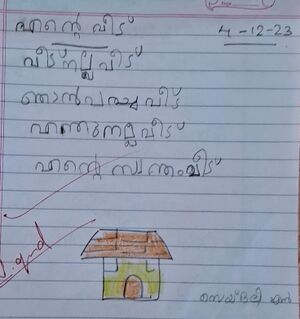 എന്റെ വീട്
4-12-23
വീട് നല്ല വീട്
ഞാൻ പറയും വീട്
എന്തു നല്ല വീട്
എന്റെ സ്വന്തം വീട്